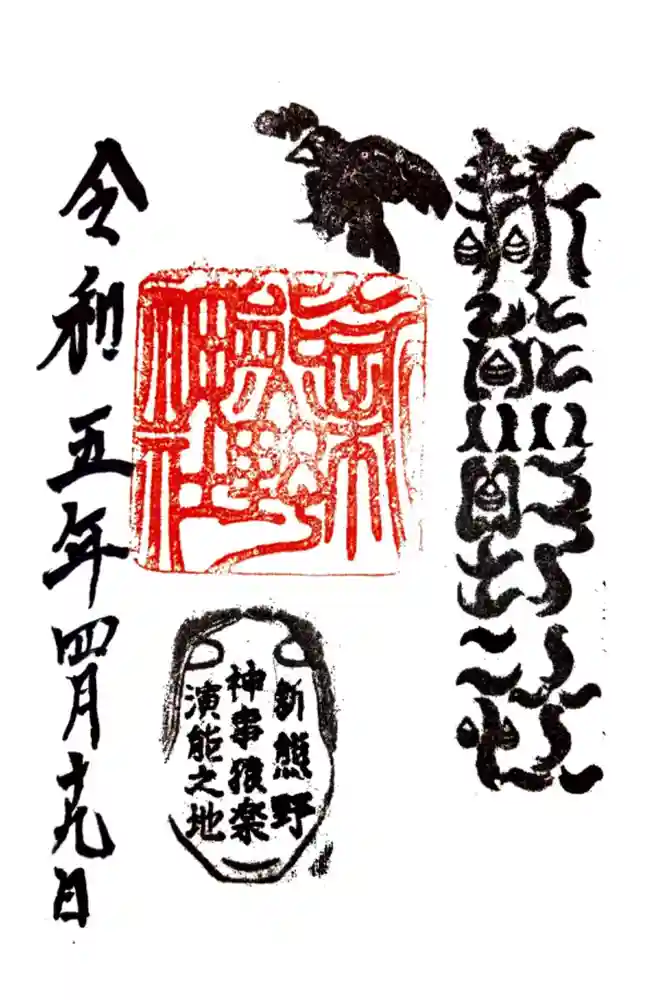 新熊野
新熊野神社
新熊野
神事猿楽
演能之地
令和五年四月十九日